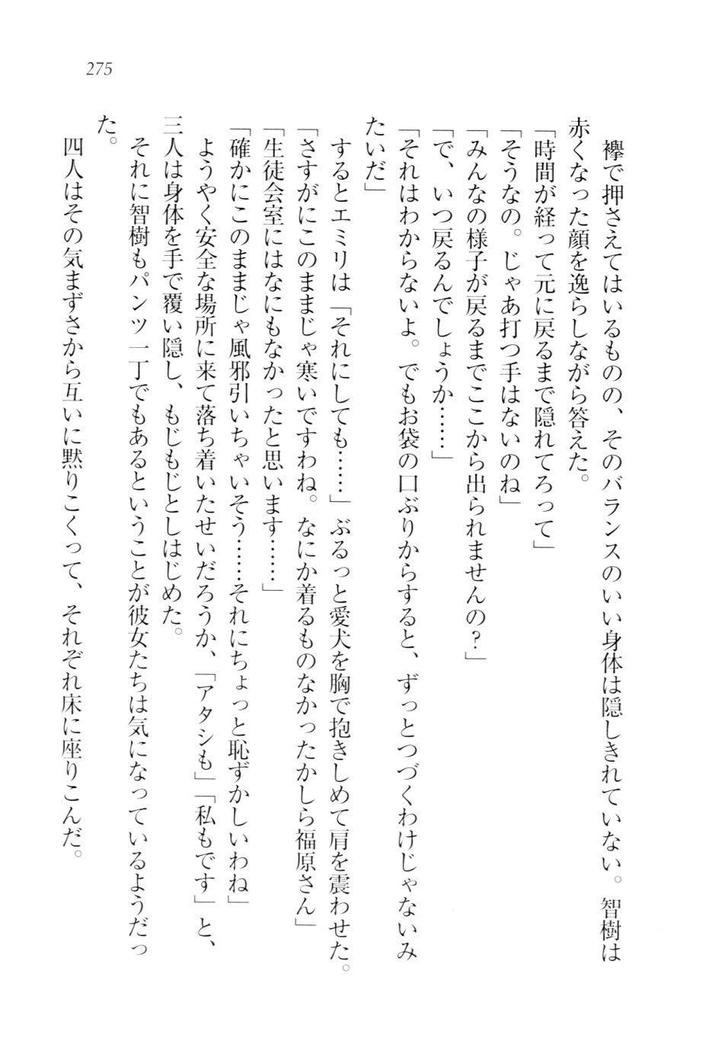 275
襷で押さえてはいるものの、そのバランスのいい身体は隠しきれていない。智樹は
赤くなった顔を逸らしながら答えた。
「時間が経って元に戻るまで隠れてろって」
「そうなの。じゃあ打つ手はないのね」
「みんなの様子が戻るまでここから出られませんの？」
「で、いつ戻るんでしょうか……」
「それはわからないよ。でもお袋の口ぶりからすると、ずっとつづくわけじゃないみ
たいだ」
するとエミリは「それにしても……」ぶるっと愛犬を胸で抱きしめて肩を震わせた。
「さすがにこのままじゃ寒いですわね。なにか着るものなかったかしら福原さん」
「生徒会室にはなにもなかったと思います……」
「確かにこのままじゃ風邪引いちゃいそう……それにちょっと恥ずかしいわね」
ようやく安全な場所に来て落ち着いたせいだろうか、「アタシも」「私もです」と、
三人は身体を手で覆い隠し、もじもじとしはじめた。
それに智樹もパンツ一丁でもあるということが彼女たちは気になっているようだっ
た。
四人はその気まずさから互いに黙りこくって、それぞれ床に座りこんだ。